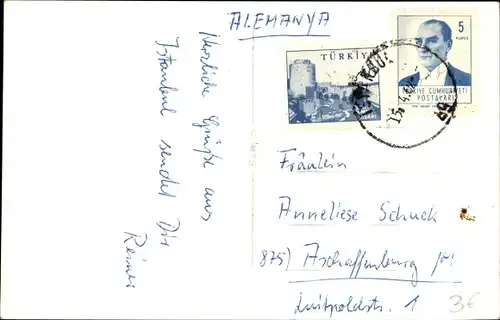 ALEMANYA
Herzliche Grüße aus
Istanbul sendet Dir
Reiner
TÜRKİYE
5
KURUŞ
TÜRKİYE CUMHURİYETİ
POSTALARI
Fräulein
Anneliese Schuck
875) Aschaffenburg
Luitpoldstr. 1
3€